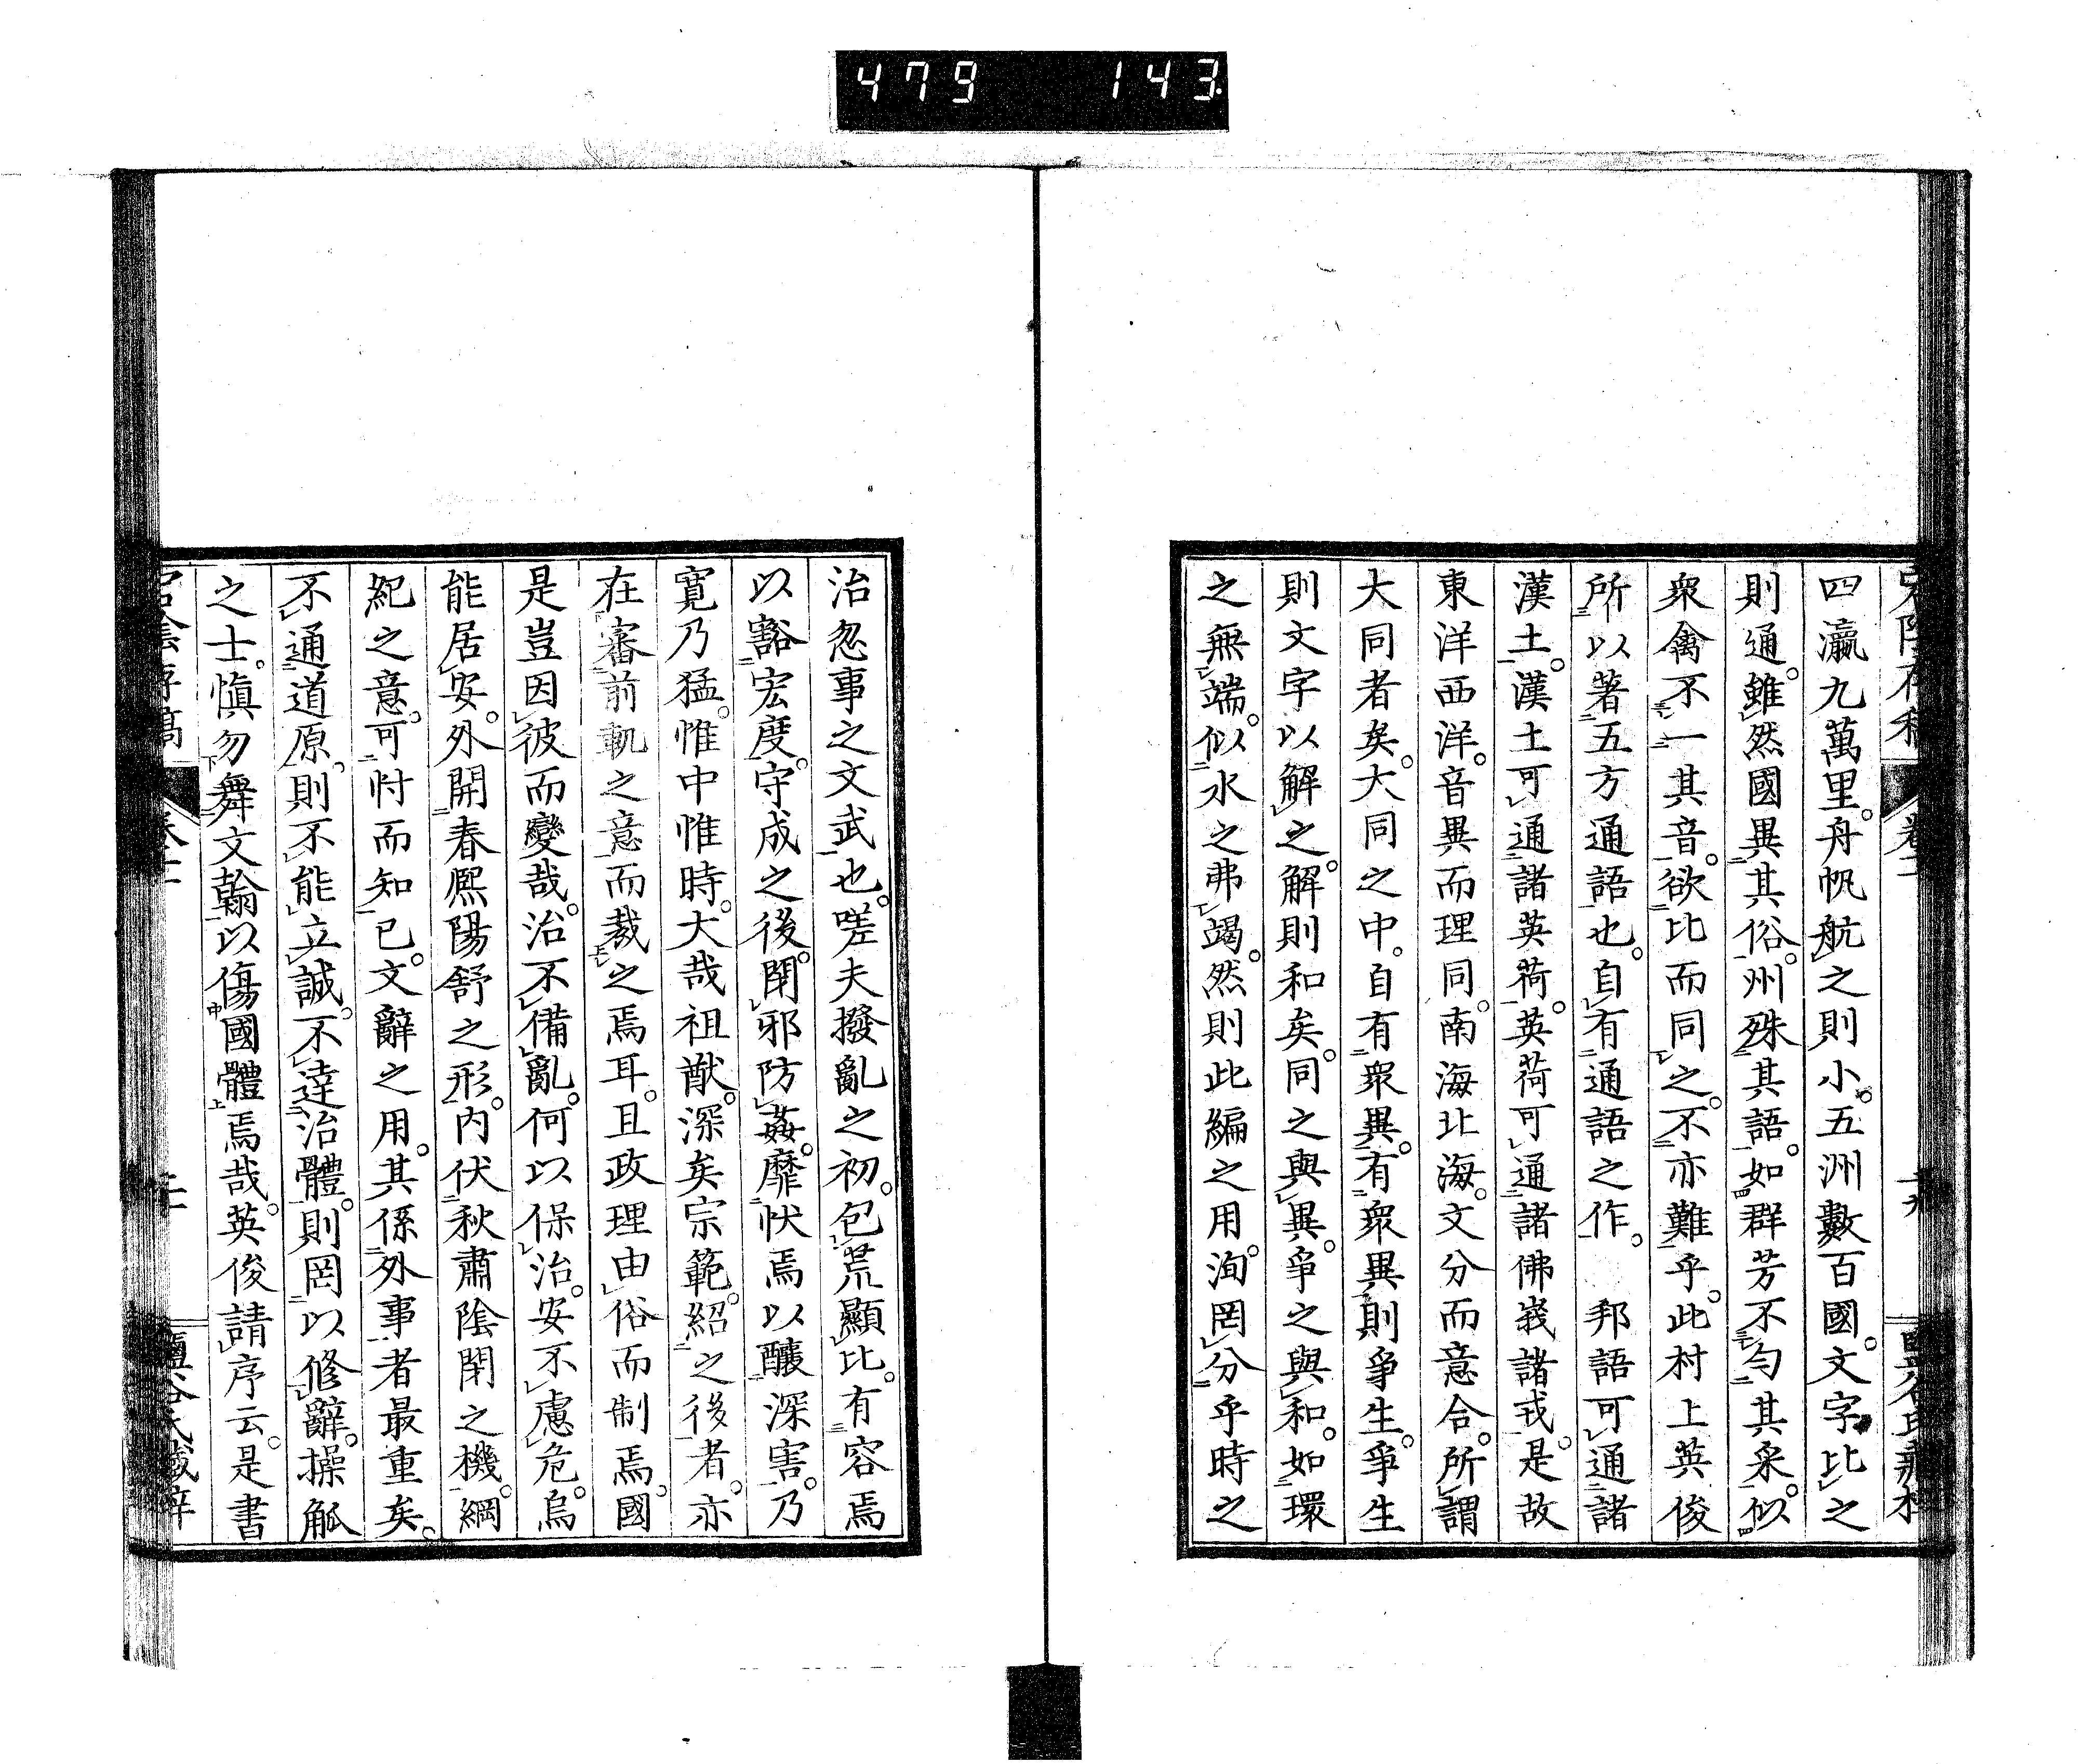 479 143
四瀛九萬里。舟帆航之則小。五洲數百國。文字比之
則通。雖然國異其俗。州殊其語。如群芳不勻其采。似
衆禽不一其音。欲比而同之。不亦難乎。此村上英俊
所以著五方通語也。自有通語之作。邦語可通諸
漢土。漢土可通諸英荷。英荷可通諸佛峩諸戎。是故
東洋西洋。音異而理同。南海北海。文分而意合。所謂
大同者矣。大同之中。自有衆異。有衆異則爭生。爭生
則文字以解之。解則和矣。同之與異。爭之與和。如環
之無端。似水之弗竭。然則此編之用。洵罔分乎時之
治忽事之文武也。嗟夫撥亂之初。包荒顯比。有容焉
以豁宏度。守成之後。閑邪防姦。靡忕焉以釀深害。乃
寛乃猛。惟中惟時。大哉祖猷。深矣宗範。紹之後者。亦
在審前軌之意而裁之焉耳。且政理由俗而制焉。國
是豈因彼而變哉。治不備亂。何以保治。安不慮危。烏
能居安。外開春熈陽舒之形。内伏秋肅陰閉之機。綱
紀之意。可忖而知已。文辭之用。其係外事者最重矣。
不通道原。則不能立誠。不達治體。則罔以修辭。操觚
之士。愼勿舞文翰以傷國體焉哉。英俊請序云。是書